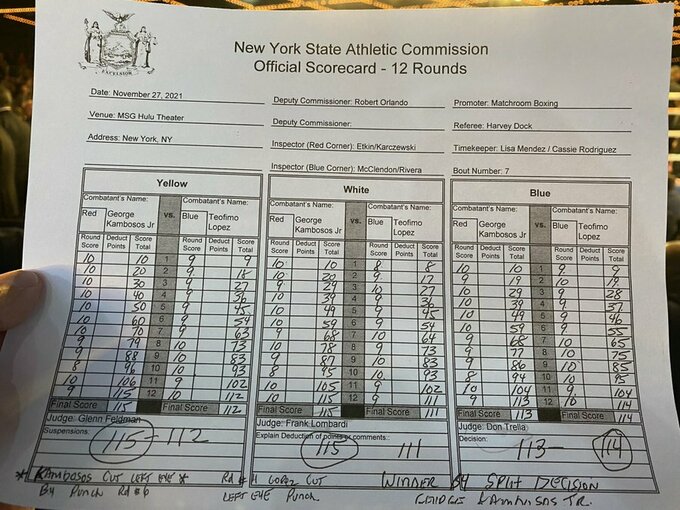 EXCELSIOR
New York State Athletic Commission
Official Scorecard - 12 Rounds
Date: November 27, 2021 Deputy Commissioner: Robert Orlando Promoter: Matchroom Boxing
Venue: MSG Hulu Theater Deputy Commissioner: Referee: Harvey Dock
Address: New York, NY Inspector (Red Corner): Etkin/Karczewski Timekeeper: Lisa Mendez / Cassie Rodriguez
Inspector (Blue Corner): McClendon/Rivera Bout Number: 7
Yellow
Combatant's Name: vs. Combatant's Name:
Red George Kambosos Jr Blue Teofimo Lopez
Round Score Deduct Points Score Total Round Score Deduct Points Score Total
10 10 1 9 9
10 20 2 9 18
10 30 3 9 27
10 40 4 9 36
10 50 5 9 45
10 60 6 9 54
10 70 7 9 63
9 79 8 10 73
9 88 9 10 83
8 96 10 10 93
10 106 11 9 102
9 115 12 10 112
Final Score 115 Final Score 112
Judge: Glenn Feldman
Suspensions: 115-112
White
Combatant's Name: vs. Combatant's Name:
Red George Kambosos Jr Blue Teofimo Lopez
Round Score Deduct Points Score Total Round Score Deduct Points Score Total
10 10 1 8 8
10 20 2 9 17
9 29 3 10 27
10 39 4 9 36
10 49 5 9 45
10 59 6 9 54
9 68 7 10 64
10 78 8 9 73
9 87 9 10 83
8 95 10 10 93
10 105 11 9 102
10 115 12 9 111
Final Score 115 Final Score 111
Judge: Frank Lombardi
Explain Deduction of points or comments:
115 111
Blue
Combatant's Name: vs. Combatant's Name:
Red George Kambosos Jr Blue Teofimo Lopez
Round Score Deduct Points Score Total Round Score Deduct Points Score Total
10 10 1 9 9
9 19 2 10 19
10 29 3 9 28
10 39 4 9 37
10 49 5 9 46
10 59 6 9 55
9 68 7 10 65
9 77 8 10 75
9 86 9 10 85
8 94 10 10 95
10 104 11 9 104
9 113 12 10 114
Final Score 113 Final Score 114
Judge: Don Trella
Decision: 113- 114
* KAMBOSOS CUT LEFT EYE * Rd # 11 LOPEZ CUT WINNER BY SPLIT DECISION
BY PUNCH Rd #6 LEFT EYE PUNCH GEORGE KAMBOSOS JR.